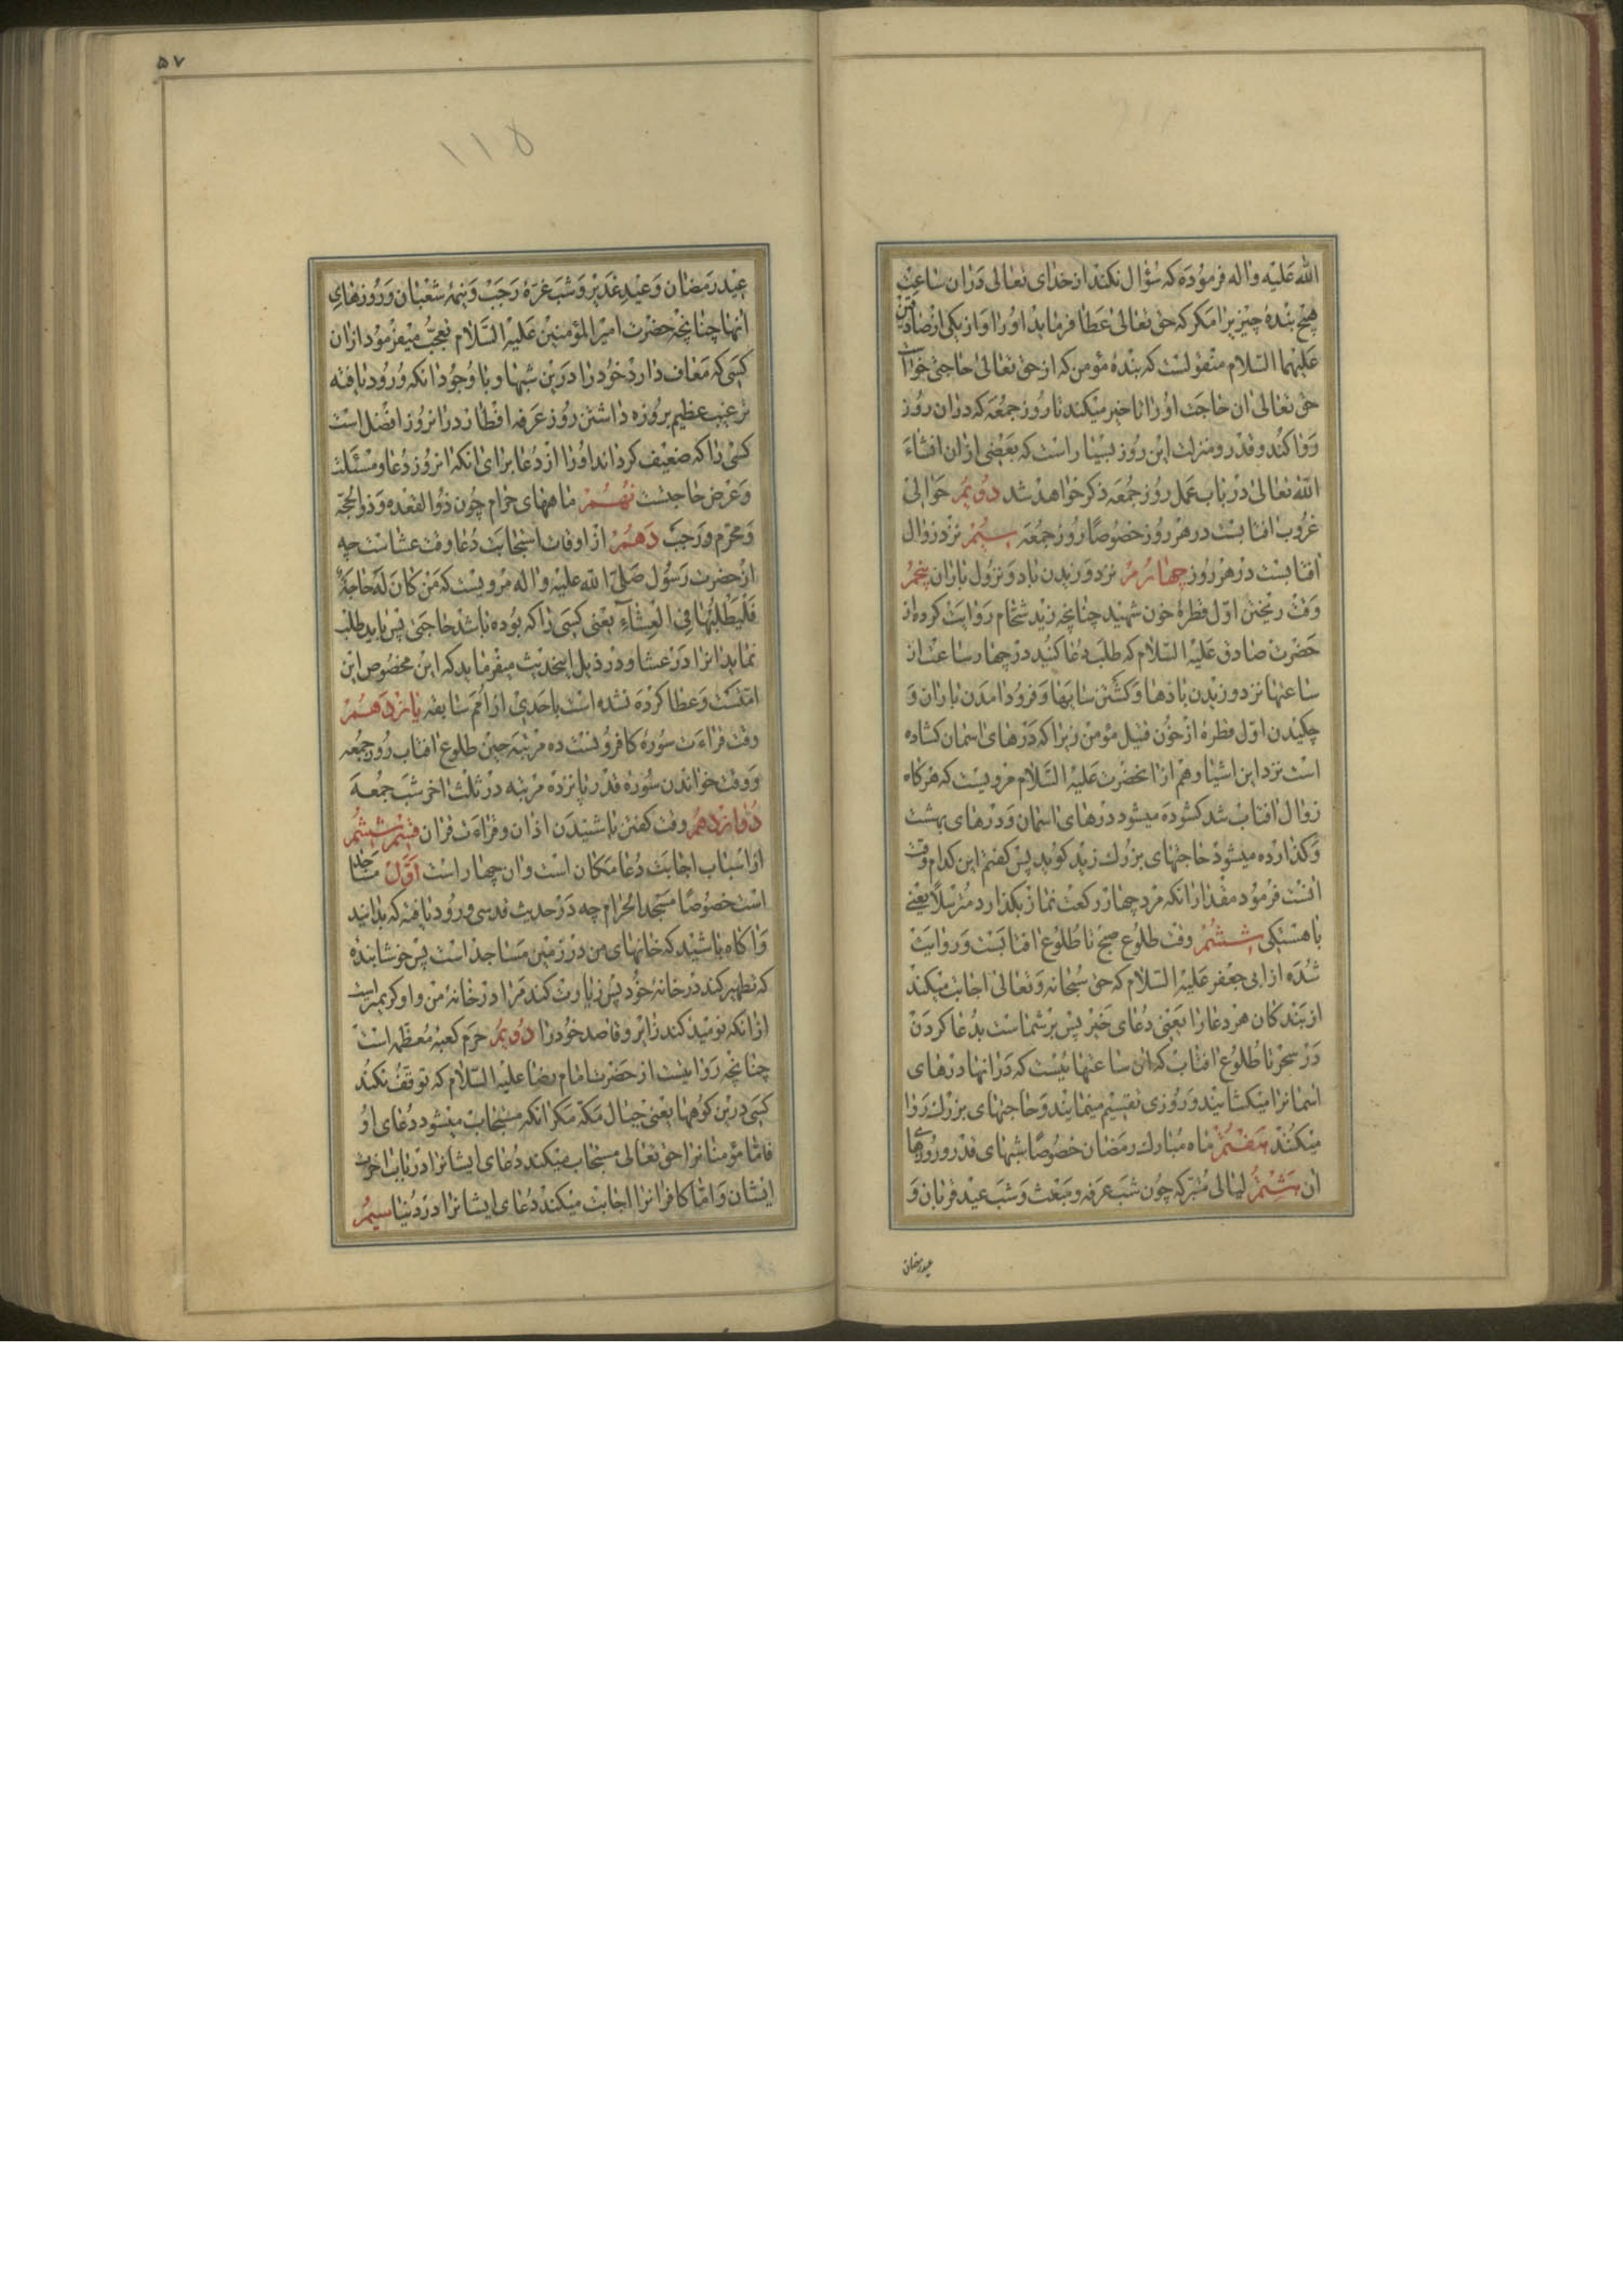 الله علیه واله فرموده که سؤال نکند از خدای تعالی دران ساعت
هیچ بندۀ چیزیرا مکر که حق تعالی عطا فرماید اورا و از یکی از صادقین
علیهما السلام منقولست که بندۀ مؤمن که از حق تعالی حاجتی خواست
حق تعالی ان حاجت اورا تاخیر میکند تا روز جمعه که دران روز
روا کند و قدر و منزلت این روز بسیار است که بعضی ازان انشاء
الله تعالی در باب عمل روز جمعه ذکر خواهد شد دویم حوالی
غروب افتابست در هر روز خصوصًا روز جمعه سیم نزد زوال
افتابست در هر روز چهارم نزد وزیدن باد و نزول باران پنجم
وقت ریختن اول قطرۀ خون شهید چنانچه زید شحام روایت کرده از
حضرت صادق علیه السلام که طلب دعا کنید در چهار ساعت از
ساعتها نزد وزیدن بادها و کشتن سایها و فرود امدن باران و
چکیدن اول قطره از خون قتیل مؤمن زیرا که درهای اسمان کشاده
است نزد این اشیا و هم ازانحضرت علیه السلام مرویست که هرکاه
زوال افتاب شد کشوده میشود درهای اسمان و درهای بهشت
و کذارده میشود حاجتهای بزرك زید کوید پس کفتم این کدام وقت
انست فرمود مقدار انکه مرد چهار رکعت نماز بکذارد مترسلاً یعنی
باهستکی ششم وقت طلوع صبح تا طلوع افتابست و روایت
شده از ابی جعفر علیه السلام که حق سبحانه و تعالی اجابت میکند
از بندکان هر دعا را یعنی دعای خیر پس بر شماست بدعا کردن
در سحر تا طلوع افتاب که ان ساعتها ئیست که در انها درهای
اسمانرا میکشایند و روزی تقسیم مینمایند و حاجتهای بزرك روا
میکنند هفتم ماه مبارك رمضان خصوصًا شبهای قدر و روزهای
ان هشتم لیالی متبرکه چون شب عرفه و مبعث و شب عید قربان و
عید رمضان
۵۷
۱۱۵
عید رمضان و عید غدیر و شب غره رجب و نیمۀ شعبان و روزهای
انها چنانچه حضرت امیرالمؤمنین علیه السلام تعجب میفرمود ازان
کسی که معاف دارد خود را درین شبها و با وجود انکه ورود یافته
ترغیب عظیم بروزه داشتن روز عرفه افطار درانروز افضل است
کسی را که ضعیف کرداند اورا از دعا برای انکه انروز دعا و مسئلت
و عرض حاجتست نهم ماههای حرام چون ذوالقعده و ذوالحجه
و محرم و رجب دهم از اوقات استجابت دعا وقت عشاست چه
از حضرت رسول صلی الله علیه واله مرویست که من کان له حاجة
فلیطلبها فی العشاء یعنی کسی را که بوده باشد حاجتی پس باید طلب
نماید انرا در عشا و در ذیل اینحدیث میفرماید که این مخصوص این
امتست و عطا کرده نشده است باحدی از امم سابقه یازدهم
وقت قراءت سورۀ کافرونست ده مرتبه حین طلوع افتاب روز جمعه
و وقت خواندن سوره قدر پانزده مرتبه در ثلث اخر شب جمعه
دوازدهم وقت کفتن یا شنیدن اذان و قراءت قران قسم ششم
از اسباب اجابت دعا مکان است وان چهار است اول مساجد
است خصوصًا مسجد الحرام چه در حدیث قدسی ورود یافته که بدانید
و اکاه باشید که خانهای من در زمین مساجد است پس خوشا بنده
که تطهیر کند در خانۀ خود پس زیارت کند مرا در خانۀ من و او کریمتر است
از انکه نومید کند زایر و قاصد خود را دویم حرم کعبۀ معظمه است
چنانچه روایتست از حضرت امام رضا علیه السلام که توقف نکند
کسی درین کوهها یعنی جبال مکه مکر انکه مستجاب میشود دعای او
فامّا مؤمنانرا حق تعالی مستجاب میکند دعای ایشانرا در باب اخرت
ایشان و امّا کافرانرا اجابت میکند دعای ایشانرا در دنیا سیم